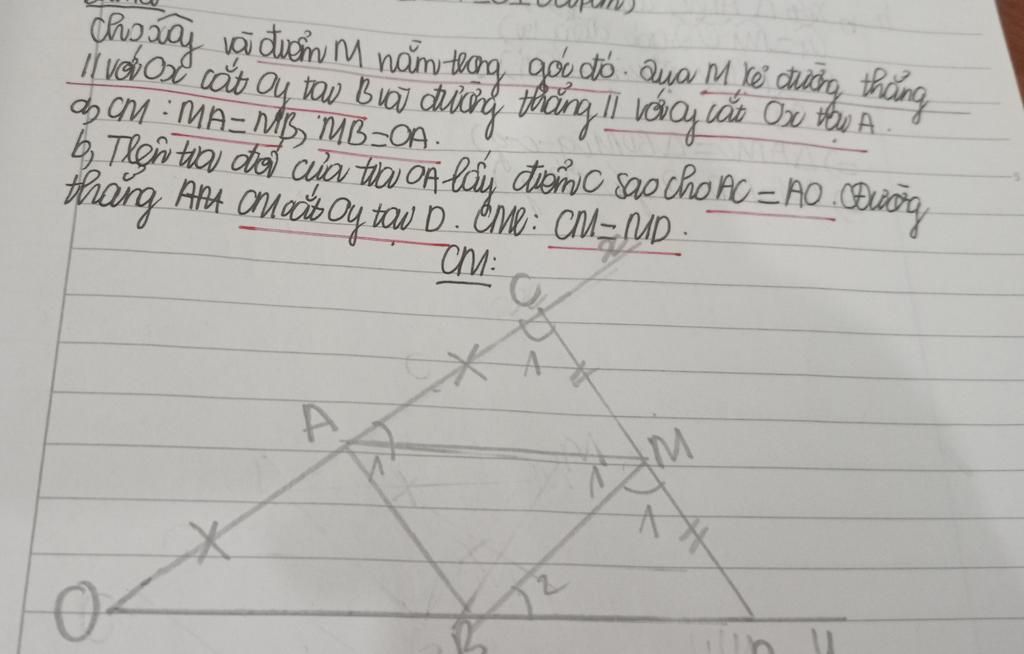 Cho xOy và điểm M nằm trong góc đó. Qua M kẻ đường thẳng
// với Ox cắt Oy tại B và đường thẳng // với Oy cắt Ox tại A.
a, CM: MA=MB, MB=OA.
b, Trên tia đối của tia OA lấy điểm C sao cho AC=AO. Đường
thẳng CM cắt Oy tại D. CM: CM=MD.
CM:
x
C
1
A
1
M
1
1
O
2
B
D
y